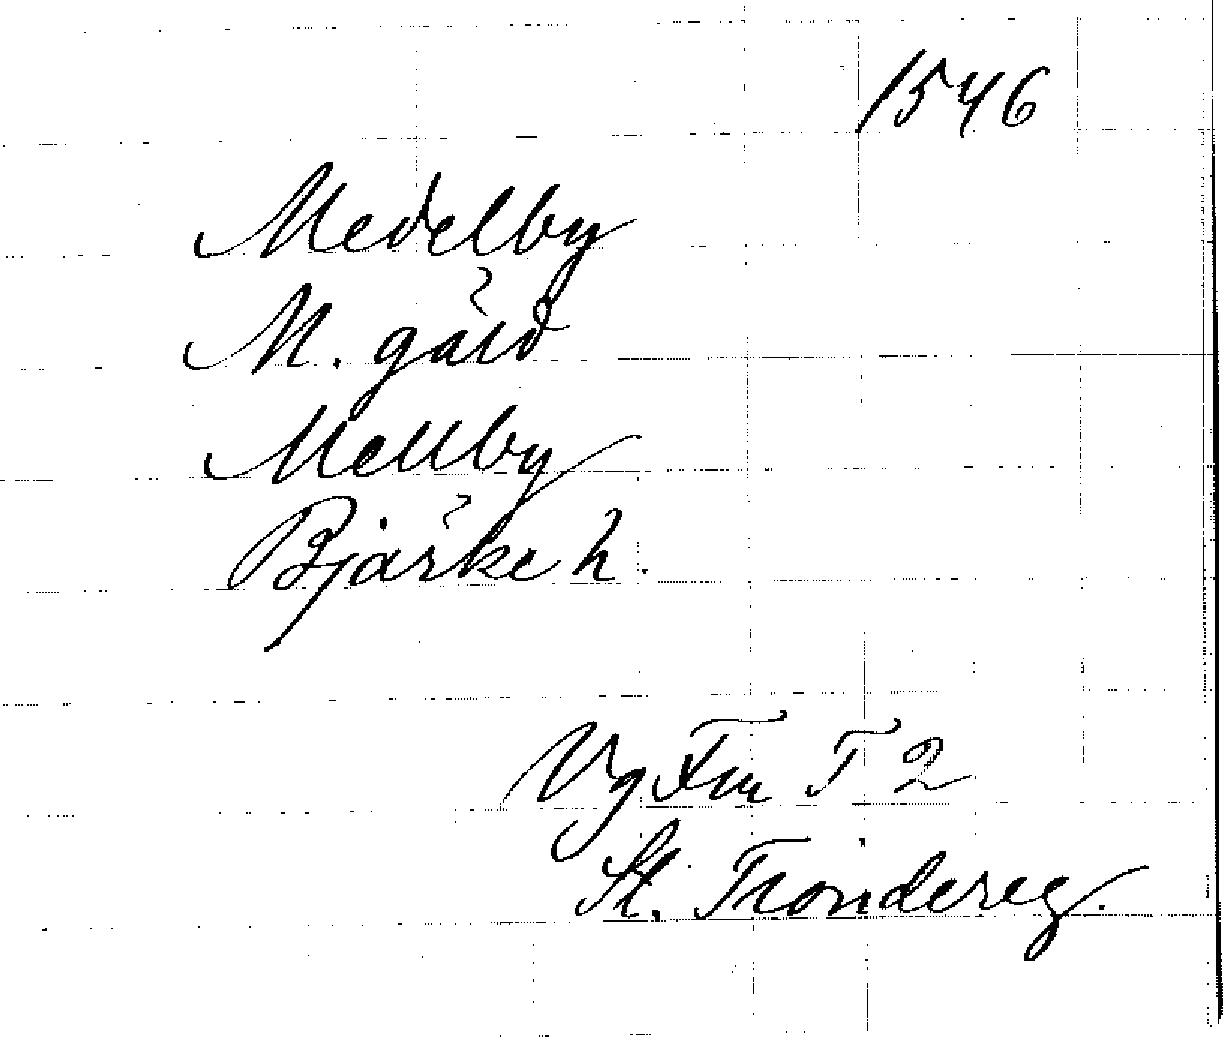 1546
Medelby
M. gård
Mellby
Bjärke h.
Vg Fru T 2
St. Tiondereg.